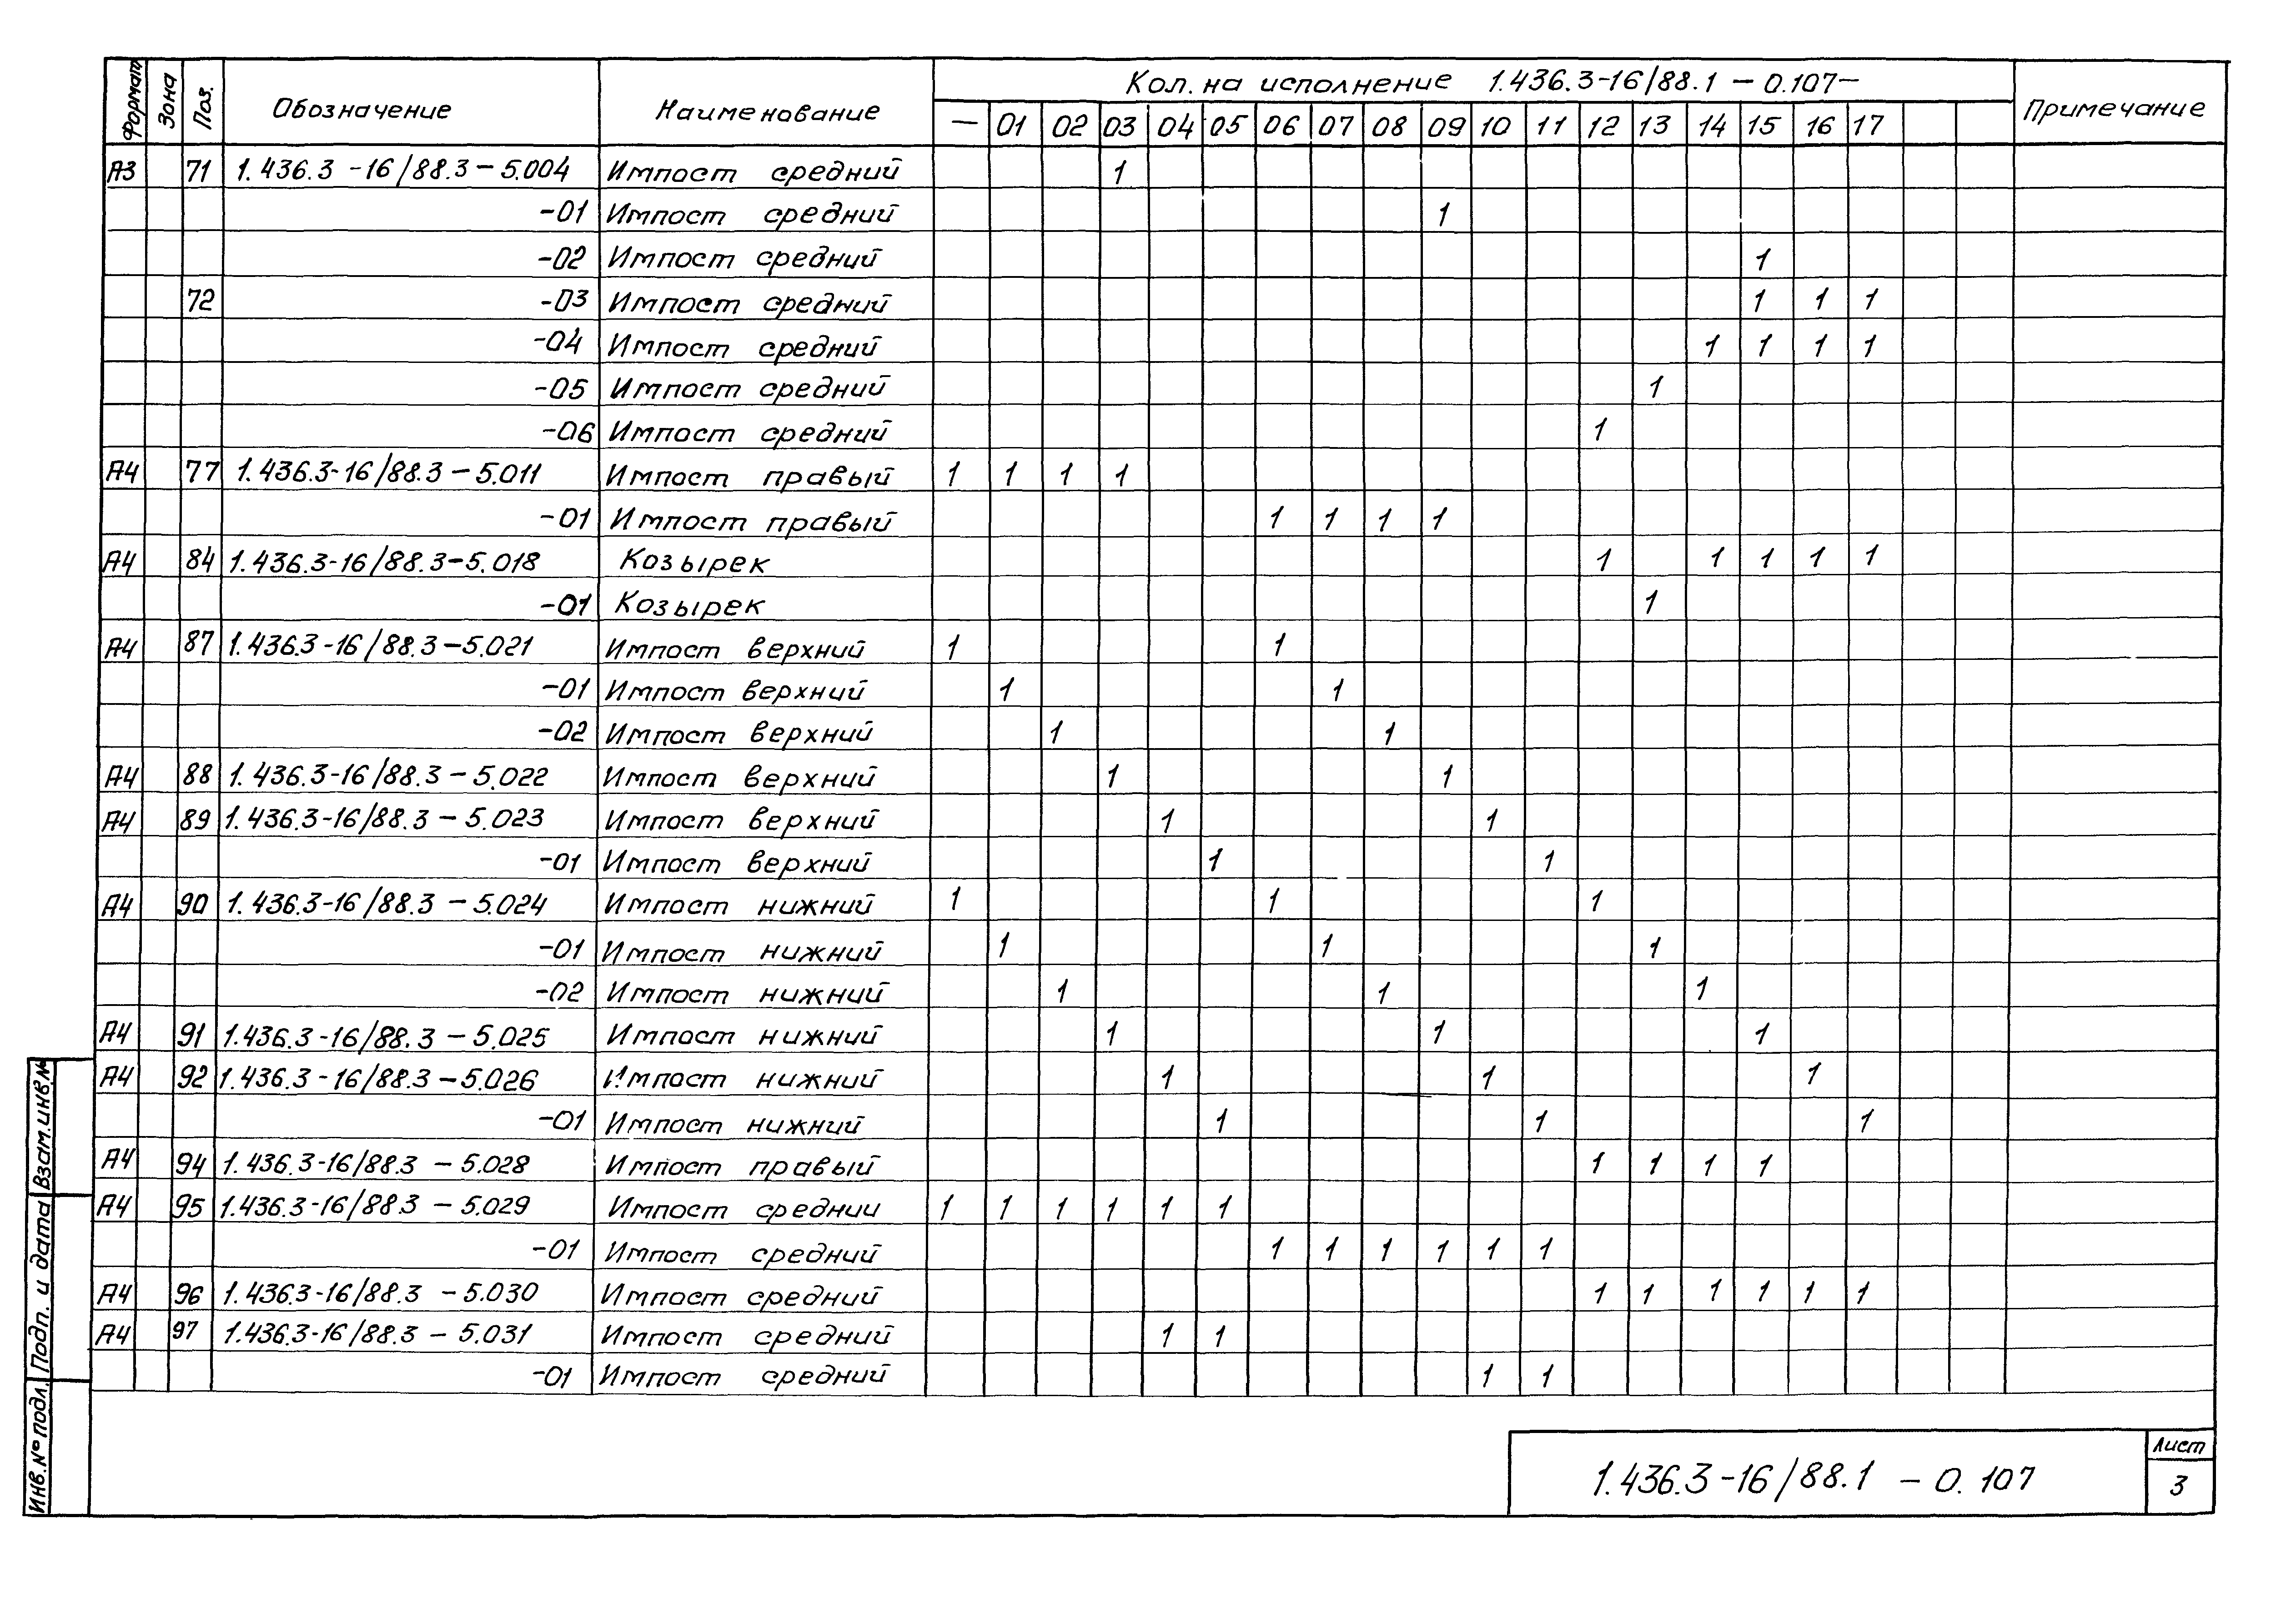 Формат Зона Поз. Обозначение Наименование Кол. на исполнение 1.436.3-16/88.1 – 0.107– Примечание
– 01 02 03 04 05 06 07 08 09 10 11 12 13 14 15 16 17
А3 71 1.436.3-16/88.3-5.004 Импост средний 1
-01 Импост средний 1
-02 Импост средний 1
72 -03 Импост средний 1 1 1
-04 Импост средний 1 1 1 1
-05 Импост средний 1
-06 Импост средний 1
А4 77 1.436.3-16/88.3-5.011 Импост правый 1 1 1 1
-01 Импост правый 1 1 1 1
А4 84 1.436.3-16/88.3-5.018 Козырек 1 1 1 1 1
-01 Козырек 1
А4 87 1.436.3-16/88.3-5.021 Импост верхний 1 1
-01 Импост верхний 1 1
-02 Импост верхний 1 1
А4 88 1.436.3-16/88.3-5.022 Импост верхний 1 1
А4 89 1.436.3-16/88.3-5.023 Импост верхний 1 1
-01 Импост верхний 1 1
А4 90 1.436.3-16/88.3-5.024 Импост нижний 1 1 1
-01 Импост нижний 1 1 1
-02 Импост нижний 1 1 1
А4 91 1.436.3-16/88.3-5.025 Импост нижний 1 1 1
А4 92 1.436.3-16/88.3-5.026 Импост нижний 1 1 1
-01 Импост нижний 1 1 1
А4 94 1.436.3-16/88.3-5.028 Импост правый 1 1 1 1
А4 95 1.436.3-16/88.3-5.029 Импост средний 1 1 1 1 1 1
-01 Импост средний 1 1 1 1 1 1
А4 96 1.436.3-16/88.3-5.030 Импост средний 1 1 1 1 1 1
А4 97 1.436.3-16/88.3-5.031 Импост средний 1 1
-01 Импост средний 1 1
Взам.инв.№
Подп. и дата
Инв.№ подл.
1.436.3-16/88.1 – 0.107
Лист
3